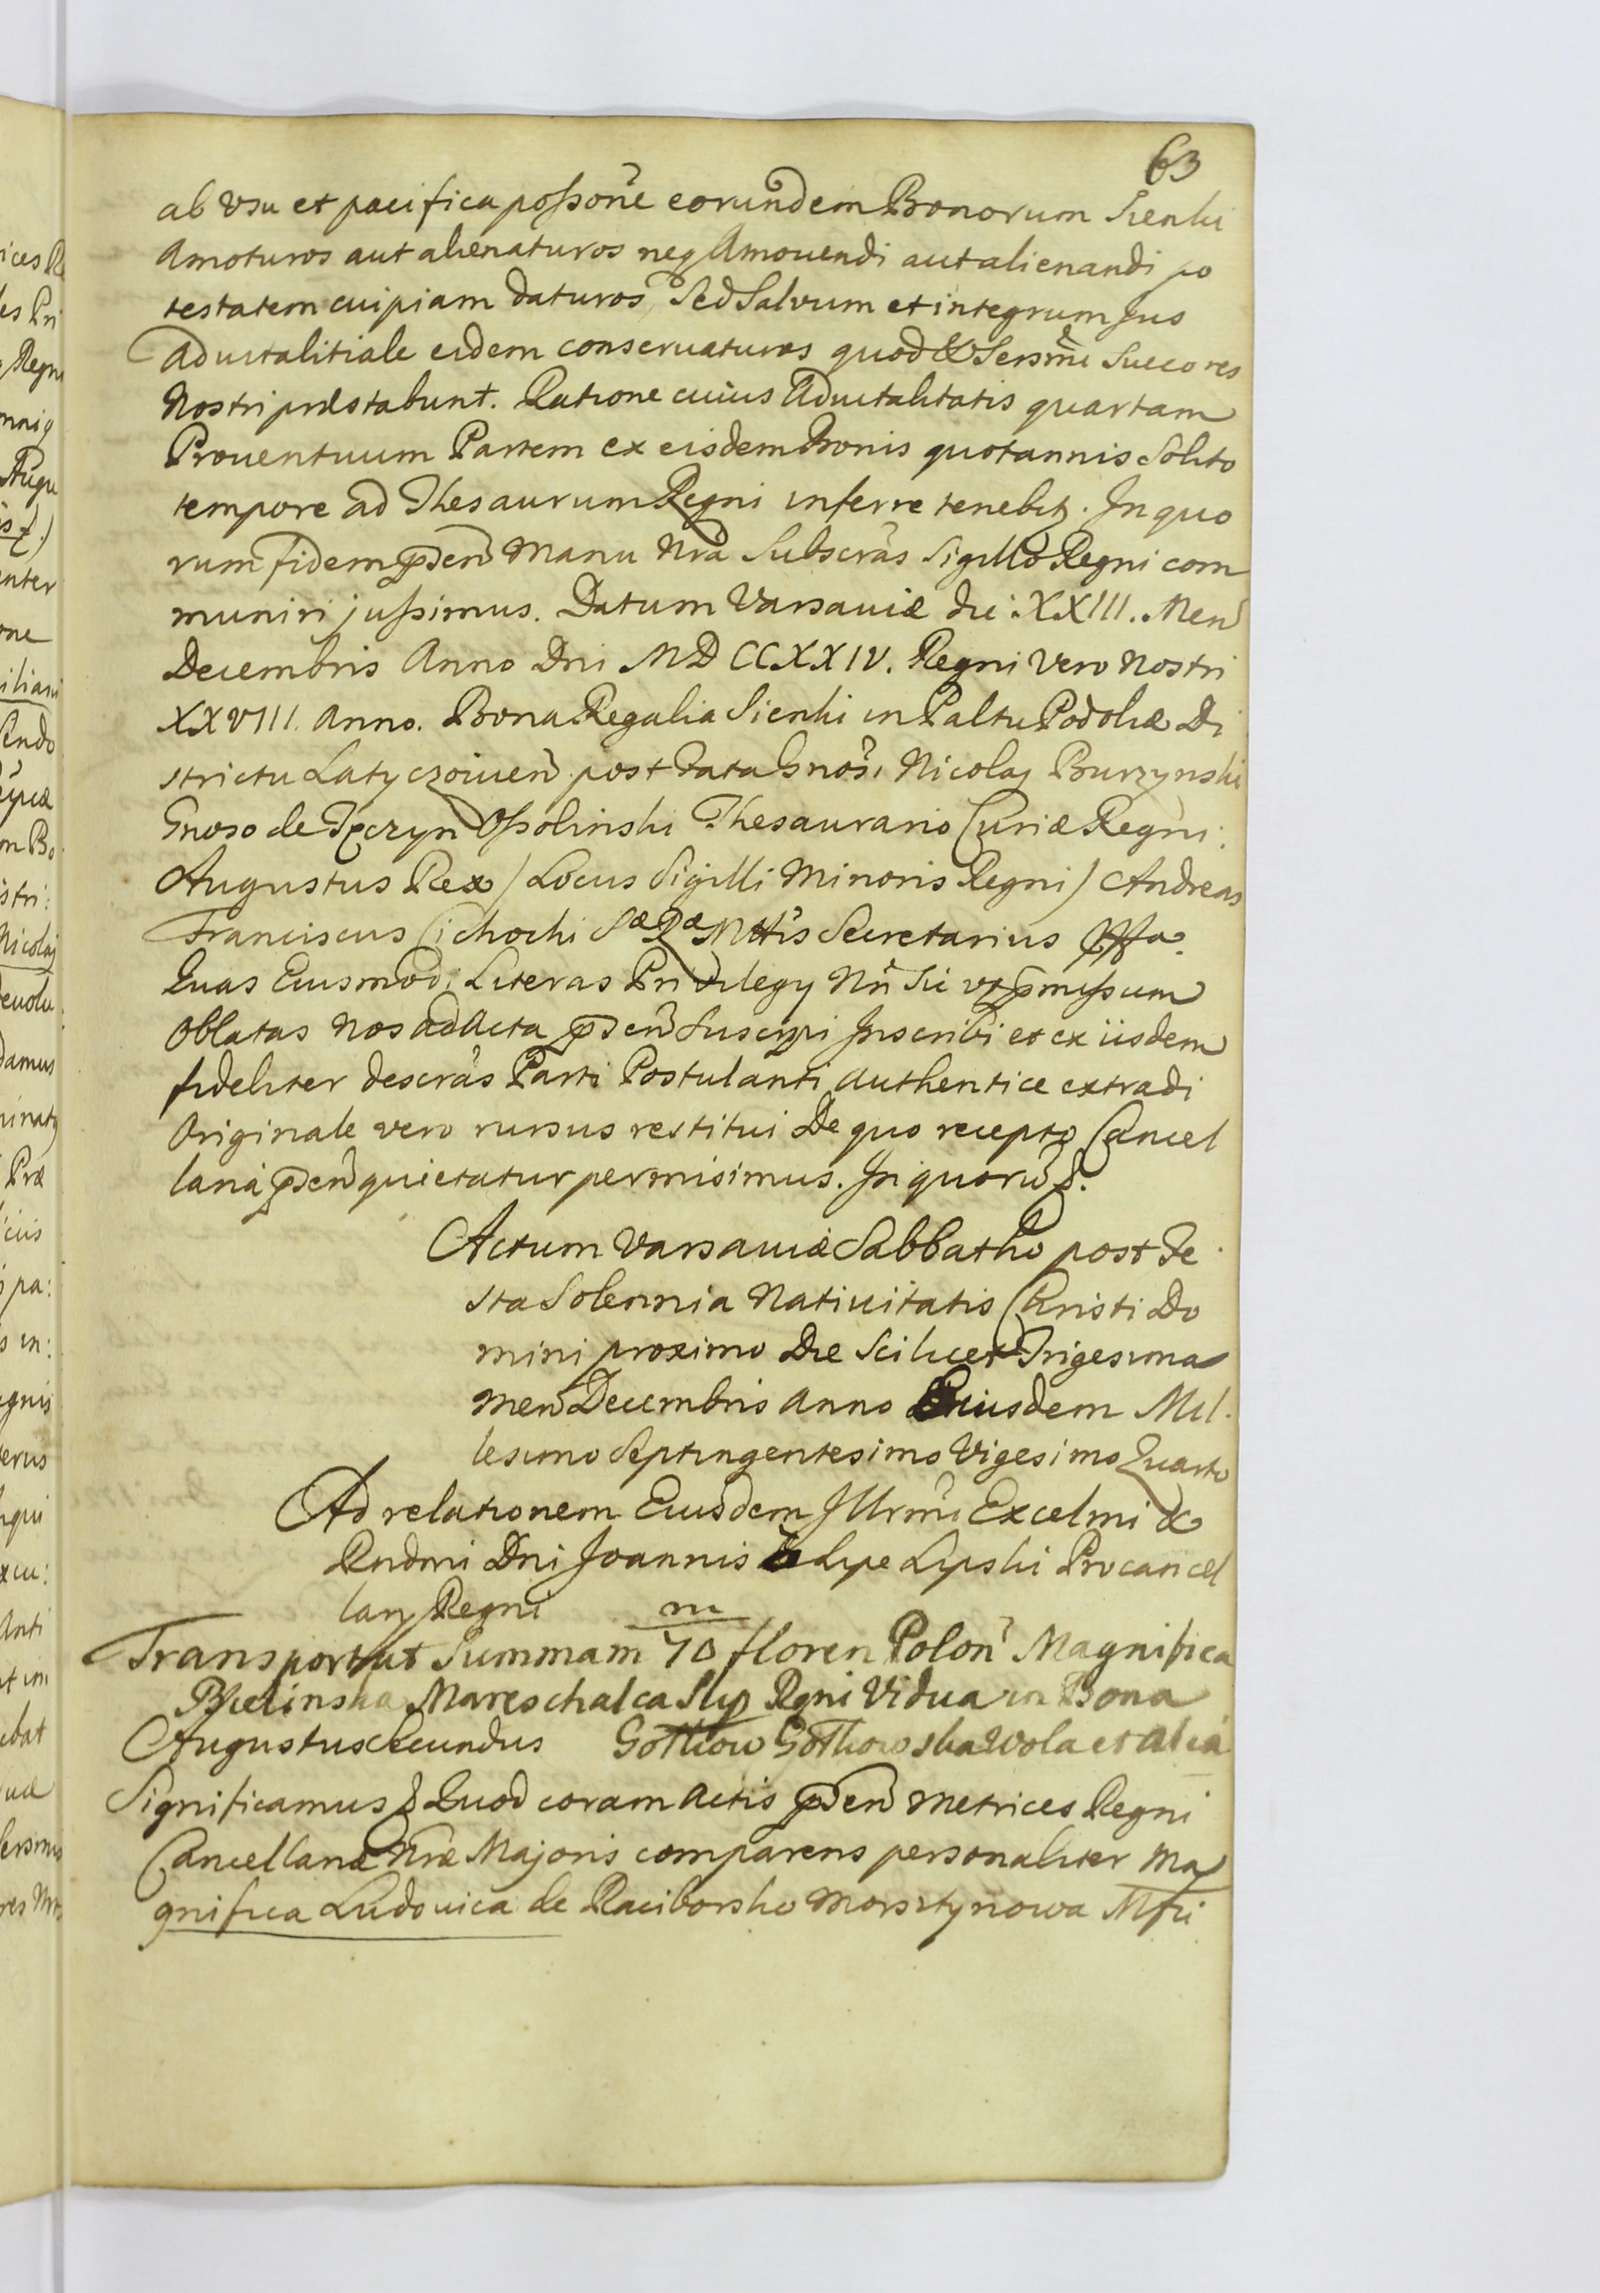 63
ab vsu et pacifica possone eorundem Bonorum Sienki
Amoturos aut alienaturos neq Amouendi aut alienandi po
testatem cuipiam daturos, Sed Salvum et integrum Jus
Aduitalitiale eidem conseruaturos quod & Sersmi Succores
Nostri præstabunt. Ratione cuius Aduitalitatis quartam
Prouentuum Partem ex eisdem Bonis quotannis Solito
tempore ad Thesaurum Regni inferre tenebit. In quo
rum fidem pden Manu Nra Subscras Sigillo Regni com
muniri jussimus. Datum Varsauiæ die XXIII. Men
Decembris Anno Dni MDCCXXIV. Regni vero Nostri
XXVIII. Anno. Bona Regalia Sienki in Paltu Podoliæ Di
strictu Latyczouien post Fata Gnosi Nicolaj Burzynski
Gnoso de Tęczyn Ossolinski Thesaurario Curiæ Regni.
Augustus Rex / Locus Sigilli Minoris Regni / Andreas
Franciscus Cichocki Sæ Ræ Mttis Secretarius
Quas Eiusmodi Literas Priuilegy Nri Sic vt pmissum
Oblatas Nos ad Acta pden Suscipi Inscribi et ex iisdem
fideliter descras Parti Postulanti Authentice extradi
Originale vero rursus restitui De quo recepto Cancel
laria pden quietatur permisimus. In quoru &.
Actum Varsauiæ Sabbatho post Fe
sta Solennia Natiuitatis Christi Do
mini proximo Die Scilicet Trigesima
Men Decembris Anno Eiusdem Mil
lesimo Septingentesimo Vigesimo Quarto
Ad relationem Eiusdem Illrmi Excelmi &
Rndmi Dni Joannis Lipe Lipski Procancel
larij Regni
m
Transportat Summam 70 floren Polon Magnifica
Bielinska Mareschalca Sup Regni Vidua in Bona
Augustus Secundus Gotkow Gotkowska Wola et alia
Significamus & Quod coram Actis pden Metrices Regni
Cancellariæ Nræ Majoris comparens personaliter Ma
gnifica Ludouica de Raciborsko Morsztynowa Mfici